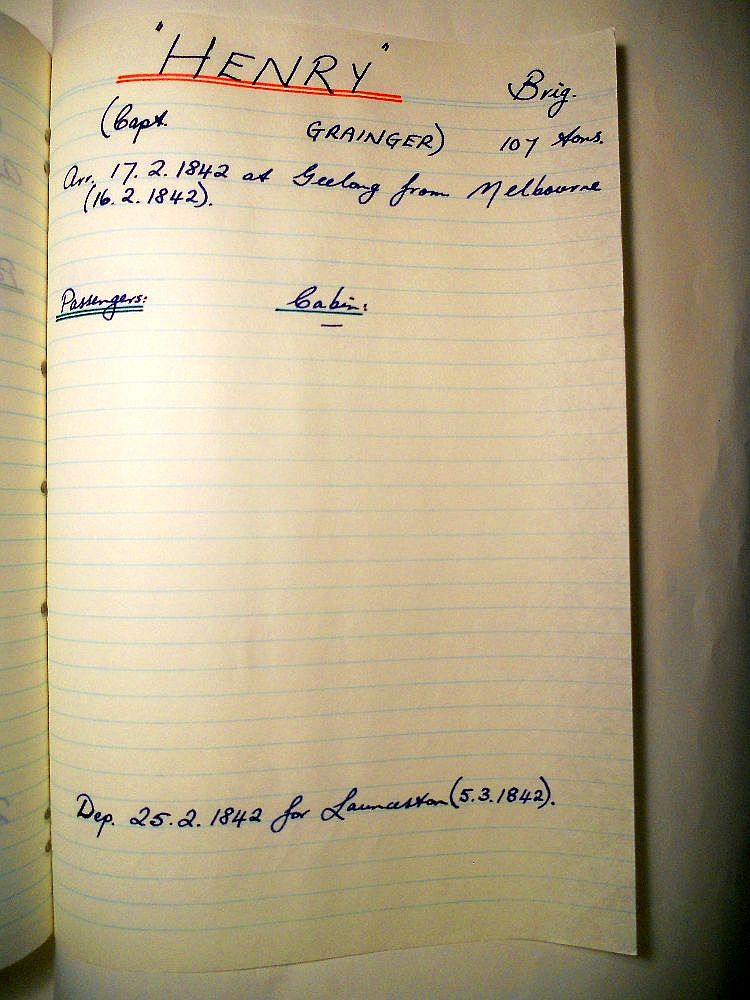 "HENRY" Brig.
(Capt. GRAINGER) 107 tons.
Arr. 17.2.1842 at Geelong from Melbourne
(16.2.1842).
Passengers: Cabin:
—
Dep. 25.2.1842 for Launceston (5.3.1842).